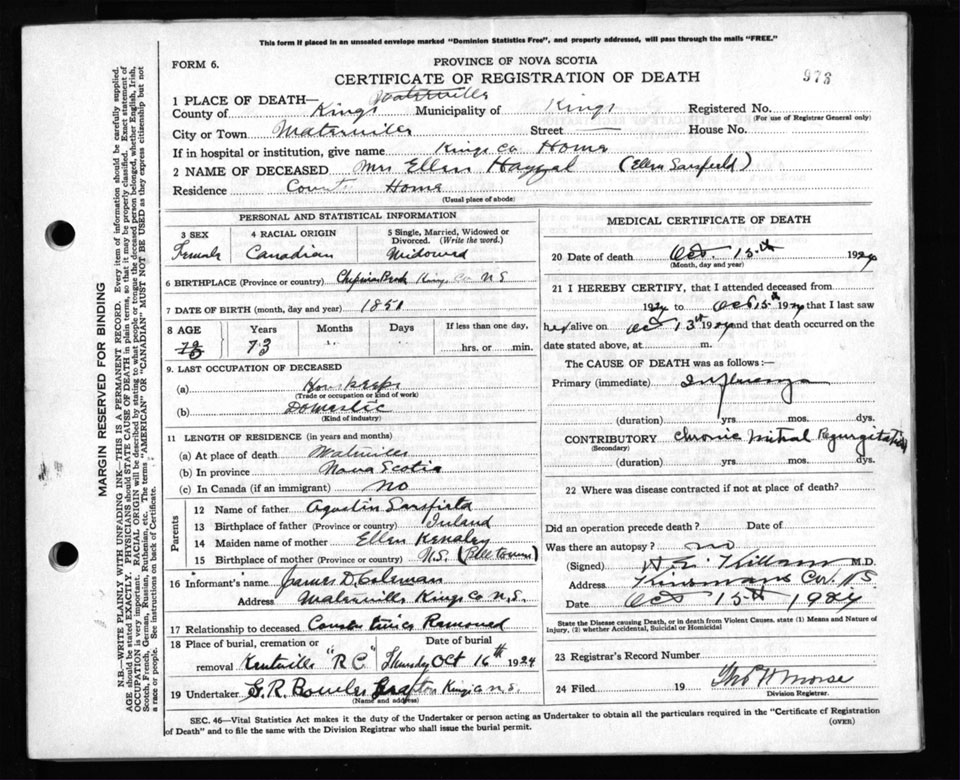 This form if placed in an unsealed envelope marked "Dominion Statistics Free", and properly addressed, will pass through the mails "FREE."
FORM 6.
PROVINCE OF NOVA SCOTIA
CERTIFICATE OF REGISTRATION OF DEATH
973
1 PLACE OF DEATH— Waterville
County of Kings Municipality of Kings Registered No.
(For use of Registrar General only)
City or Town Waterville Street — House No.
If in hospital or institution, give name Kings Co Home
2 NAME OF DECEASED Mrs Ellen (Ellen Sarsfield)
Residence County Home
(Usual place of abode)
PERSONAL AND STATISTICAL INFORMATION
3 SEX 4 RACIAL ORIGIN 5 Single, Married, Widowed or Divorced. (Write the word.)
Female Canadian Widowed
6 BIRTHPLACE (Province or country) Kings Co N S
7 DATE OF BIRTH (month, day and year) 1851
8 AGE Years Months Days If less than one day,
73 hrs. or min.
9. LAST OCCUPATION OF DECEASED
(a)
(Trade or occupation or kind of work)
(b) Domestic
(Kind of industry)
11 LENGTH OF RESIDENCE (in years and months)
(a) At place of death
(b) In province Nova Scotia
(c) In Canada (if an immigrant) no
Parents
12 Name of father Sarsfield
13 Birthplace of father (Province or country) Ireland
14 Maiden name of mother Ellen
15 Birthplace of mother (Province or country) N.S.
16 Informant's name James D. Coleman
Address Waterville Kings Co N.S.
17 Relationship to deceased
18 Place of burial, cremation or removal Kentville "R C" Date of burial Thursday Oct 16th 1924
19 Undertaker G. R. Bowles Grafton Kings Co N.S.
(Name and address)
MEDICAL CERTIFICATE OF DEATH
20 Date of death Oct. 15th 1924
(Month, day and year)
21 I HEREBY CERTIFY, that I attended deceased from
1924 to Oct 15th 1924 that I last saw
her alive on Oct 13th 1924 and that death occurred on the
date stated above, at m.
The CAUSE OF DEATH was as follows:—
Primary (immediate) Influenza
(duration) yrs. mos. dys.
CONTRIBUTORY Chronic Mitral Regurgitation
(Secondary)
(duration) yrs. mos. dys.
22 Where was disease contracted if not at place of death?
Did an operation precede death? Date of
Was there an autopsy? no
(Signed) Killam M.D.
Address N S
Date Oct 15th 1924
State the Disease causing Death, or in death from Violent Causes, state (1) Means and Nature of
Injury, (2) whether Accidental, Suicidal or Homicidal
23 Registrar's Record Number
24 Filed 19 Thos H Morse
Division Registrar.
SEC. 46—Vital Statistics Act makes it the duty of the Undertaker or person acting as Undertaker to obtain all the particulars required in the "Certificate of Registration
of Death" and to file the same with the Division Registrar who shall issue the burial permit.
(OVER)
MARGIN RESERVED FOR BINDING
N.B.—WRITE PLAINLY WITH UNFADING INK—THIS IS A PERMANENT RECORD. Every item of information should be carefully supplied.
AGE should be stated EXACTLY. PHYSICIANS should STATE CAUSE OF DEATH in plain terms, so that it may be properly classified. Exact statement of
OCCUPATION is very important. RACIAL ORIGIN will be described by stating to what people or tongue the deceased person belonged, whether English, Irish,
Scotch, French, German, Russian, Ruthenian, etc. The terms "AMERICAN" or "CANADIAN" MUST NOT BE USED as they express citizenship but not
a race or people. See instructions on back of Certificate.